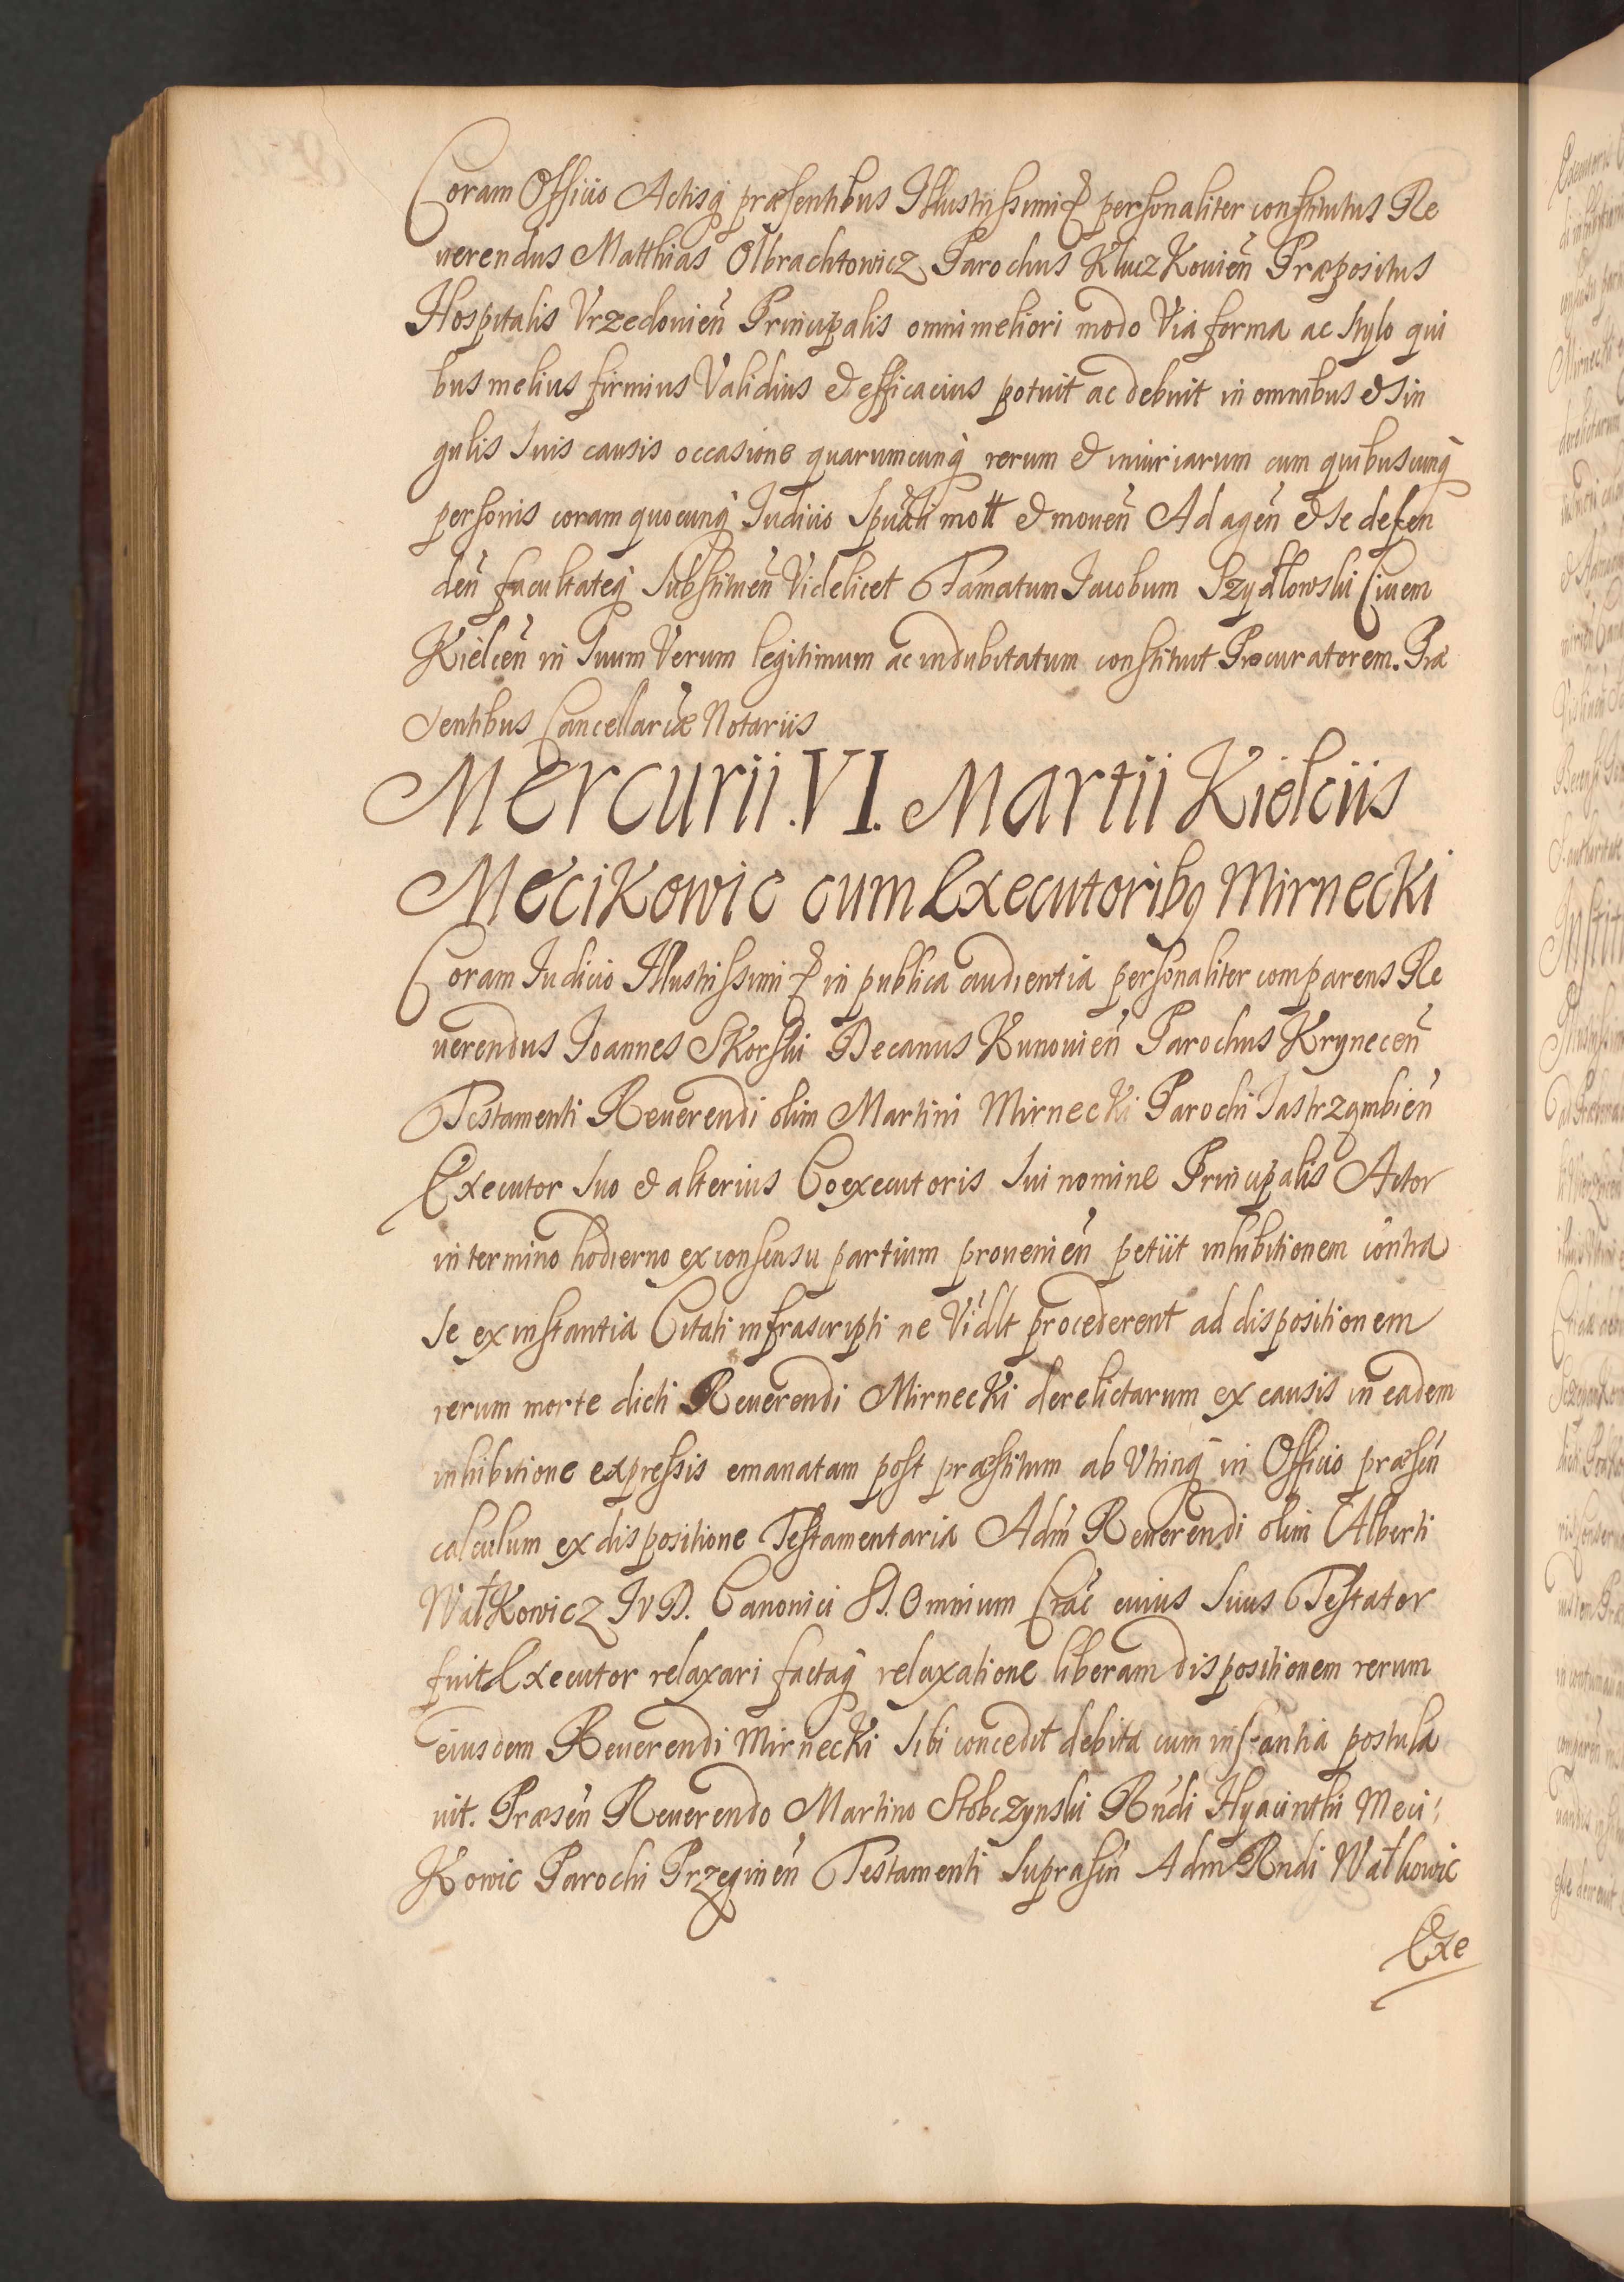 Coram Officio Actisq̃ præsentibus Illustrissimi & personaliter constitutus Re
uerendus Matthias Olbrachtowicz Parochus Kluczkouien̄ Præpositus
Hospitalis Vrzedouien̄ Principalis omni meliori modo Via forma ac stylo qui
bus melius firmius Validius & efficacius potuit ac debuit in omnibus & sin
gulis suis causis occasione quarumcunq̃ rerum & iniuriarum cum quibuscunq̃
personis coram quocunq̃ Iudicio Spūali mott & mouen̄ Ad agen̄ & se defen
den̄ facultateq̃ substituen̄ Videlicet Famatum Iacobum Szydłowski Ciuem
Kielcen̄ in suum Verum legitimum ac indubitatum constituit Procuratorem. Præ
sentibus Cancellariæ Notariis
Mercurii .VI. Martii Kielciis
Mecikowic cum Executoribq Mirnecki
Coram Iudicio Illustrissimi & in publica audientia personaliter comparens Re
uerendus Ioannes Skorski Decanus Kunouien̄ Parochus Krynecen̄
Testamenti Reuerendi olim Martini Mirnecki Parochi Iastrząmbien̄
Executor suo & alterius Coexecutoris sui nomine Principalis Actor
in termino hodierno ex consensu partium prouenien̄ petiit inhibitionem contra
se ex instantia Citati infrascripti ne Vidlt procederent ad dispositionem
rerum morte dicti Reuerendi Mirnecki derelictarum ex causis in eadem
inhibitione expressis emanatam post præstitum ab Vtrinq̃ in Officio præsn̄
calculum ex dispositione Testamentaria Adm̄ Reuerendi olim Alberti
Wałkowicz IVD. Canonici SS. Omnium Crac̄ cuius suus Testator
fuit Executor relaxari factaq̃ relaxatione liberam dispositionem rerum
eiusdem Reuerendi Mirnecki sibi concedit debita cum instantia postula
uit. Præsen̄ Reuerendo Martino Stobczynski Rn̄di Hyacinthi Meci-
Kowic Parochi Przeginen̄ Testamenti suprasn̄ Adm Rndi Wałkowic
Exe